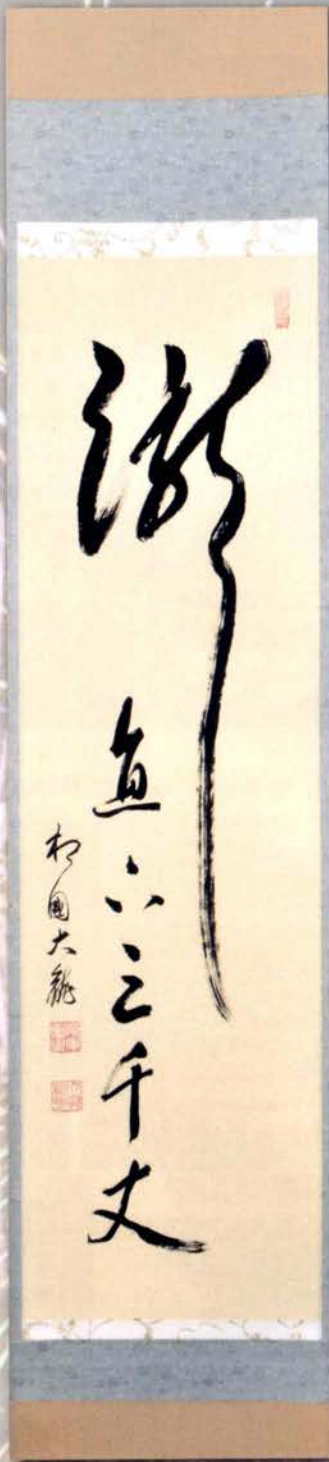 瀧
直下三千丈
相國大龍